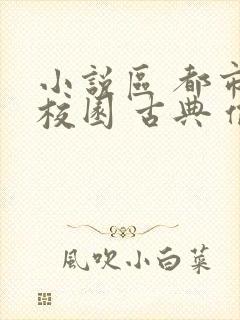 小說區 都市
校園 古典
風吹小白菜